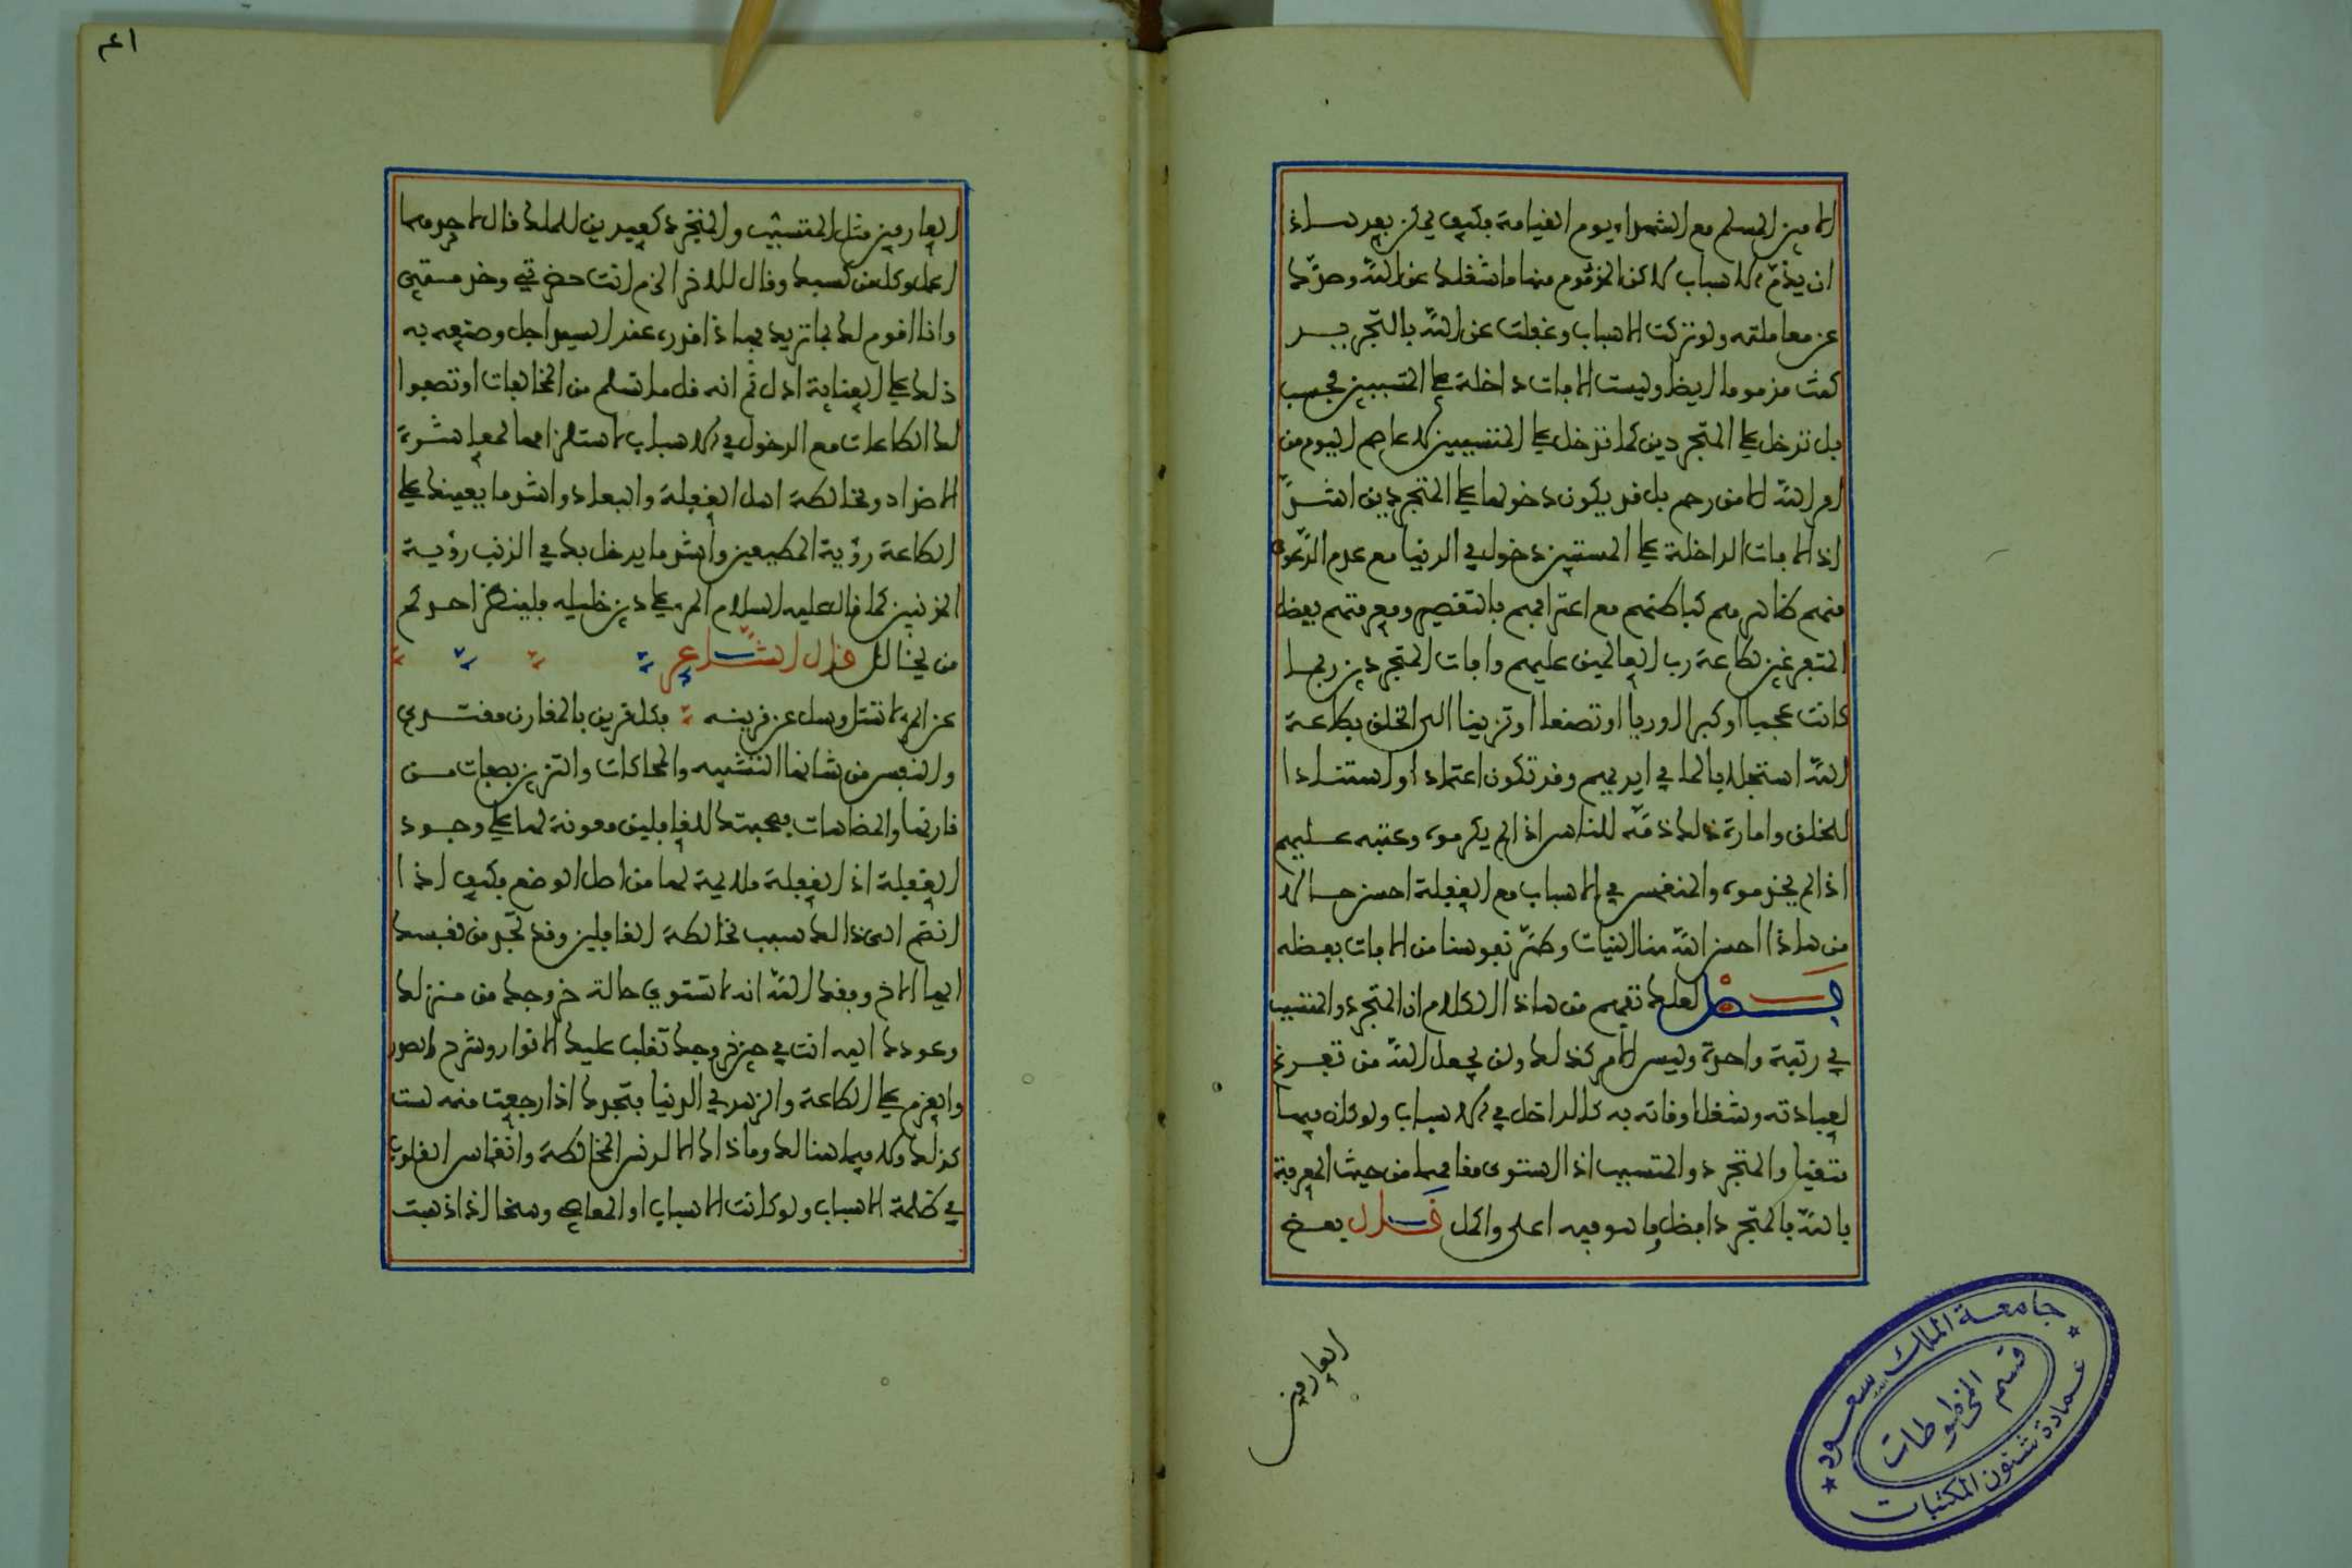 الامين المسلم مع الشهداء يوم القيامة فكيف يمكن بعد هاذا
ان يذم الاسباب لاكن المذموم منها ما شغلك عن الله وصدّك
عن معاملته ولو تركت الاسباب وغفلت عن الله بالتجريد
كنت مذموما ايضا وليست الافات داخلة على المتسببين فحسب
بل تدخل على المتجردين كما تدخل على المتسببين لا عاصم اليوم من
امر الله الا من رحم بل قد يكون دخولها على المتجردين اشدّ
اذ الافات الداخلة على المتسببين دخول في الدنيا مع عدم الدعوى
منهم ظاهرهم كباطنهم مع اعترافهم بالتقصير ومعرفتهم بفضل
المتفرغين لطاعة رب العالمين عليهم وافات المتجردين ربما
كانت عجبا او كبرا او ريا او تصنعا او تزينا الى الخلق بطاعة
الله استجلابا لما في ايديهم وقد تكون اعتمادا او استنادا
للخلق وامارة ذلك ذمّه للناس اذا لم يكرموه وعتبه عليهم
اذا لم يخدموه والمنغمس في الاسباب مع الغفلة احسن حالا
من هاذا احسن الله منا النيات وطهّر نفوسنا من الافات بفضله
فصل لعلك تفهم من هاذا الكلام ان المتجرد والمتسبب
في رتبة واحدة وليس الامر كذلك ولن يجعل الله من تفرغ
لعبادته وشغل اوقاته به كالداخل في الاسباب ولو كان فيها
متقيا والمتجرد والمتسبب اذا استوى مقامهما من حيث المعرفة
بالله فالمتجرد افضل وما هو فيه اعلى واكمل قال بعض
العارفين
جامعة الملك سعود
قسم المخطوطات
عمادة شئون المكتبات
العارفين مثل المتسبب والمتجرد كعبدين للملك قال لاحدهما
اعمل وكل من كسبك وقال للاخر الزم انت حضرتي وخدمتي
وانا اقوم لك بما تريد فهاذا قدره عند السيد اجل وصنعه به
ذلك على العناية ادل ثم انه قل ما تسلم من المخالفات او تصفوا
لك الطاعات مع الدخول في الاسباب لاستلزامها لمعاشرة
الاضداد ومخالطة اهل الغفلة والبعاد واشد ما يعينك على
الطاعة رؤية المطيعين واشد ما يدخل بك في الذنب رؤية
المذنبين كما قال عليه السلام المرء على دين خليله فلينظر احدكم
من يخالل قال الشاعر
عن المرء لا تسئل وسل عن قرينه فكل قرين بالمقارن مقتدي
والنفس من شانها التشبيه والمحاكات والتزين بصفات من
قارنها والمضاهات فصحبتك للغافلين معونة لها على وجود
الغفلة اذ الغفلة ملايمة لها من اصل الوضع فكيف اذا
انضم الى ذالك سبب مخالطة الغافلين وقد تجد من نفسك
ايها الاخ وفقك الله انه لا تستوي حالة خروجك من منزلك
وعودك اليه انت في حين خروجك تغلب عليك الانوار وشرح الصدر
والعزم على الطاعة والزهد في الدنيا فتجدك اذا رجعت منه لست
كذلك ولا فيما هنالك وما ذاك الا لدنس المخالطة وانغماس القلوب
في ظلمة الاسباب ولو كانت الاسباب او المعاصي وشخالذ اذا ذهبت